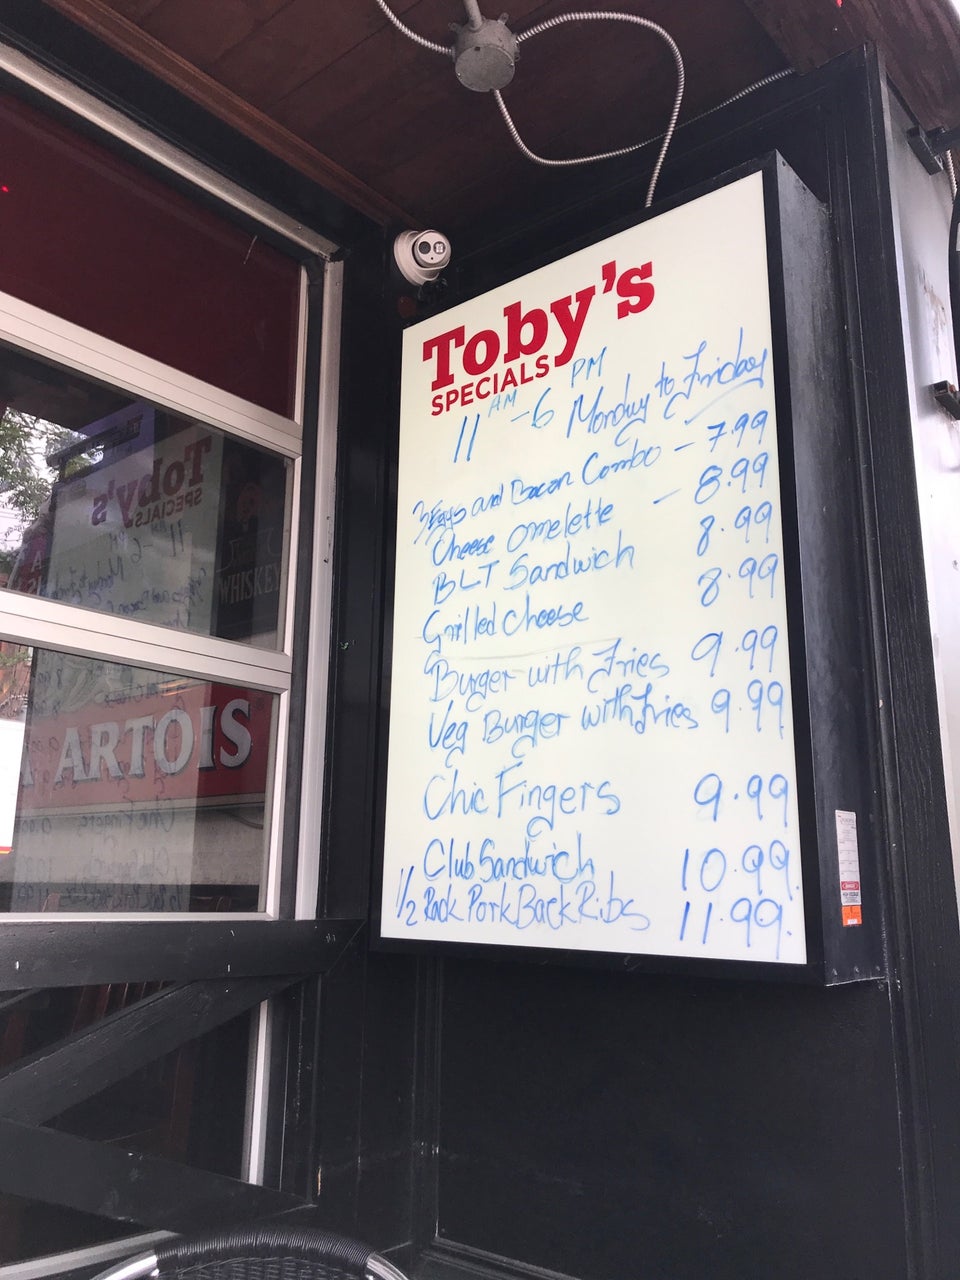 Toby's
SPECIALS
11 AM - 6 PM Monday to Friday
3 Eggs and Bacon Combo - 7.99
Cheese omelette - 8.99
BLT Sandwich 8.99
Grilled cheese 8.99
Burger with Fries 9.99
Veg Burger with Fries 9.99
Chic Fingers 9.99
Club Sandwich 10.99
1/2 Rack Pork Back Ribs 11.99
Toby's
SPECIALS
11 - 6
WHISKEY
ARTOIS